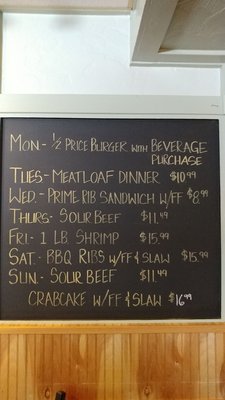 MON- 1/2 PRICE BURGER WITH BEVERAGE
PURCHASE
TUES- MEATLOAF DINNER $10.99
WED.- PRIME RIB SANDWICH W/FF $8.99
THURS- SOUR BEEF $11.49
FRI- 1 LB. SHRIMP $15.99
SAT.- BBQ RIBS W/FF & SLAW $15.99
SUN.- SOUR BEEF $11.49
CRABCAKE W/FF & SLAW $16.99